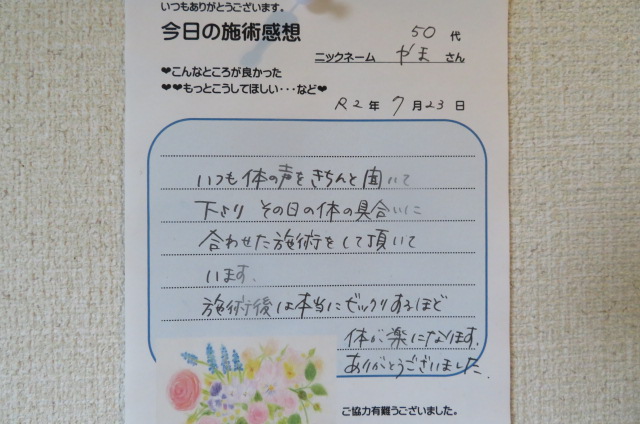 いつもありがとうございます。
今日の施術感想
50 代
ニックネーム やま さん
❤こんなところが良かった
❤❤もっとこうしてほしい・・・など❤
R2 年 7 月 23 日
いつも体の声をきちんと聞いて
下さり その日の体の具合いに
合わせた施術をして頂いて
います。
施術後は本当にビックリするほど
体が楽になります。
ありがとうございました。
ご協力有難うございました。